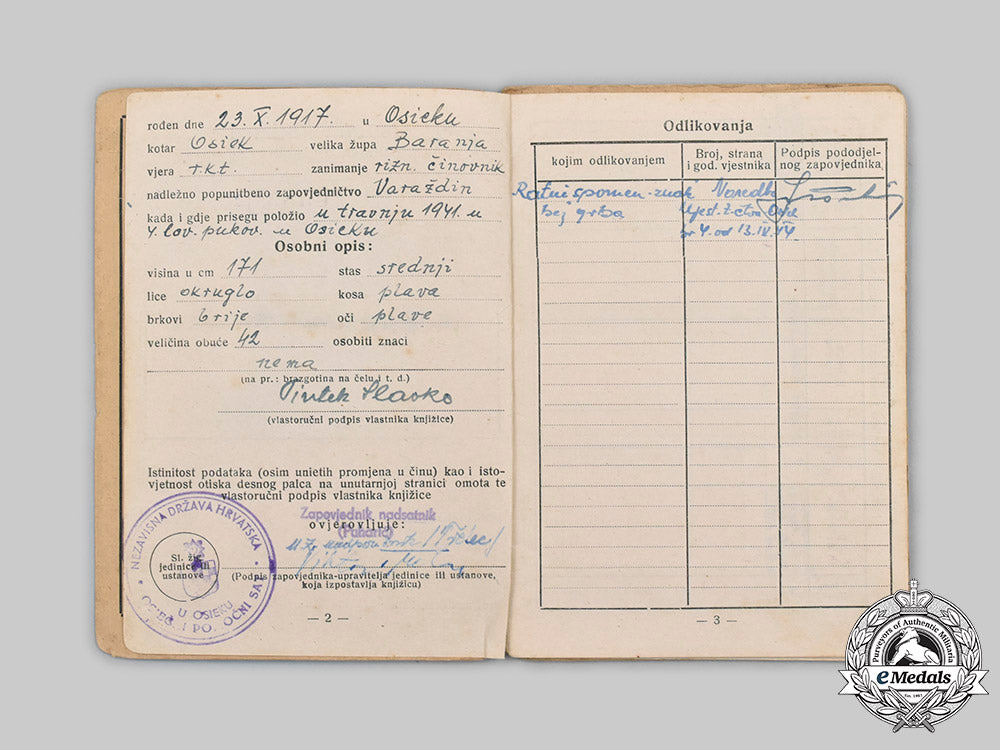 rođen dne 23.X.1917. u Osieku
kotar Osiek velika župa Baranja
vjera r.kt. zanimanje rižn. činovnik
nadležno popunitbeno zapovjedničtvo Varaždin
kada i gdje prisegu položio u travnju 1941. u
4. lov. pukov. u Osieku
Osobni opis:
visina u cm 171 stas srednji
lice okruglo kosa plava
brkovi brije oči plave
veličina obuće 42 osobiti znaci
nema
(na pr.: brazgotina na čelu i t. d.)
Slavko
(vlastoručni podpis vlastnika knjižice)
Istinitost podataka (osim unietih promjena u činu) kao i isto-
vjetnost otiska desnog palca na unutarnjoj stranici omota te
vlastoručni podpis vlastnika knjižice
Zapovjednik nadsatnik
ovjerovljuje:
NEZAVISNA DRŽAVA HRVATSKA
Sl. žig
jedinice ili
ustanove
U OSIEKU
(Podpis zapovjednika-upravitelja jedinice ili ustanove,
koja izpostavlja knjižicu)
— 2 —
Odlikovanja
kojim odlikovanjem
Broj, strana
i god. vjestnika
Podpis pododjel-
nog zapovjednika
Ratni spomen-znak Naredba
bez grba
br 4. od 13.IV.44.
— 3 —
Purveyors of Authentic Militaria
eMedals